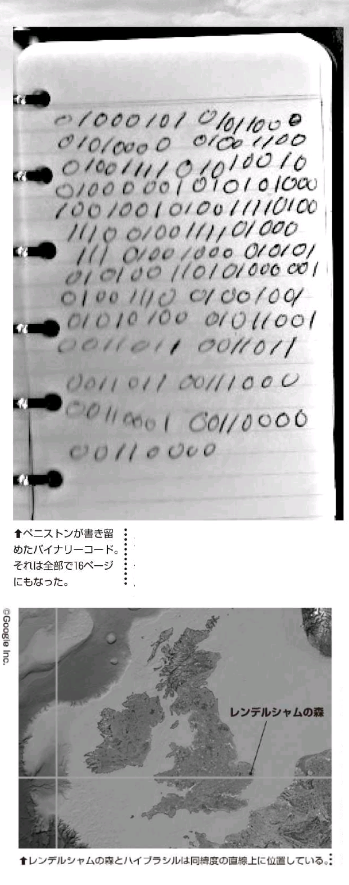 01000101 01011000
01010000 01001100
01001111 01010010
01000001 01010101000
100100101001111110100
1110 01001111 01000
111 01001000 010101
010100 110101000001
01001110 01001001
01010100 01011001
0011011 0011011
0011011 00111000
00110001 00110000
00110000
⬆ペニストンが書き留
めたバイナリーコード。
それは全部で16ページ
にもなった。
©Google Inc.
レンデルシャムの森
⬆レンデルシャムの森とハイブラシルは同緯度の直線上に位置している。